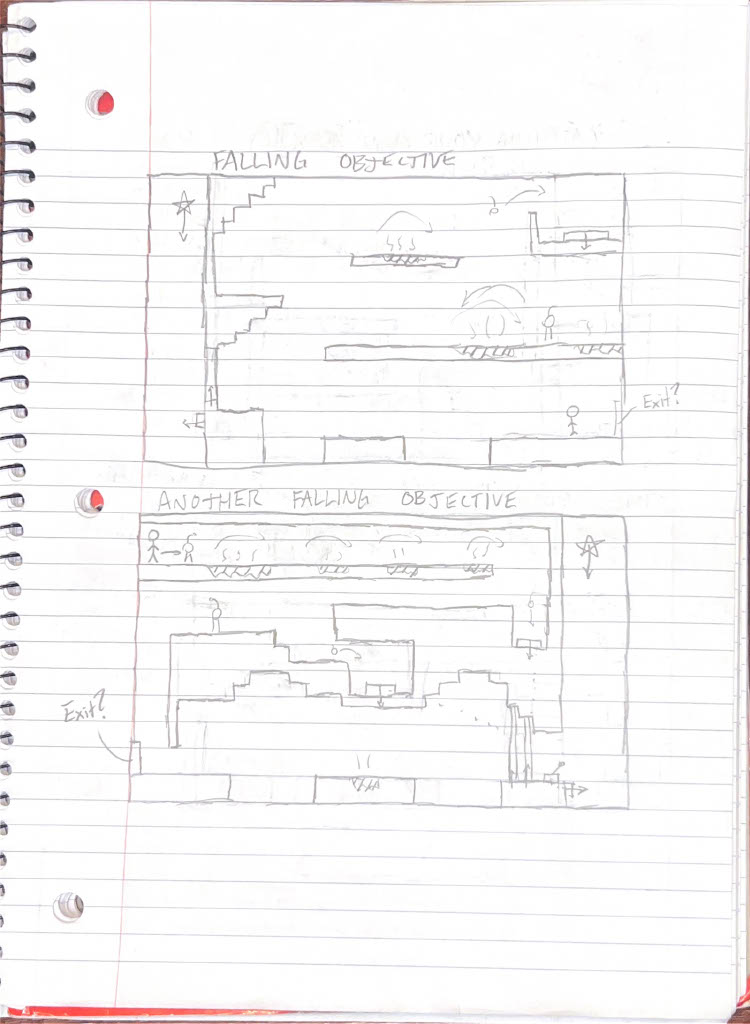 FALLING OBJECTIVE
Exit?
ANOTHER FALLING OBJECTIVE
Exit?